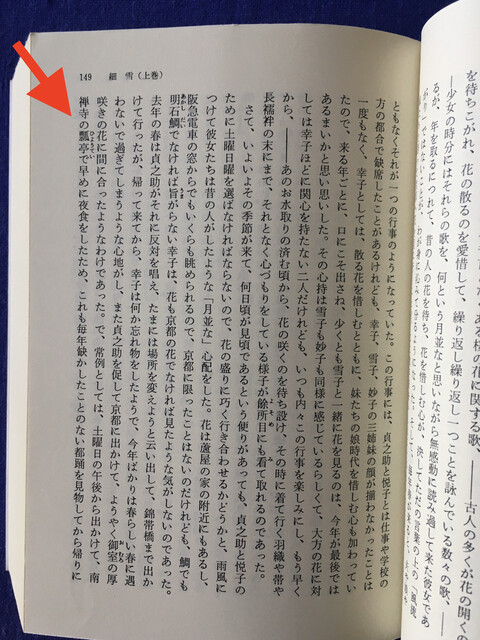 を待ちこがれ、花の散るのを愛惜して、繰り返し繰り返し一つことを詠んでいる数々の歌、
149 細 雪（上巻）
ともなくそれが一つの行事のようになっていた。この行事には、貞之助と悦子とは仕事や学校の
方の都合で缺席したことがあるけれども、幸子、雪子、妙子の三姉妹の顔が揃わなかったことは
一度もなく、幸子としては、散る花を惜しむとともに、妹たちの娘時代を惜しむ心も加わってい
たので、来る年ごとに、口にこそ出さね、少くとも雪子と一緒に花を見るのは、今年が最後では
あるまいかと思い思いした。その心持は雪子も妙子も同様に感じているらしくて、大方の花に対
しては幸子ほどに関心を持たない二人だけれども、いつも内々この行事を楽しみにし、もう早く
から、――あのお水取りの済む頃から、花の咲くのを待ち設け、その時に着て行く羽織や帯や
長襦袢の末にまで、それとなく心づもりをしている様子が餘所目にも看て取れるのであった。
さて、いよいよその季節が来て、何日頃が見頃であるという便りがあっても、貞之助と悦子の
ために土曜日曜を選ばなければならないので、花の盛りに巧く行き合わせるかどうかと、雨風に
つけて彼女たちは昔の人がしたような「月並な」心配をした。花は蘆屋の家の附近にもあるし、
阪急電車の窓からでもいくらも眺められるので、京都に限ったことはないのだけれども、鯛でも
明石鯛でなければ旨がらない幸子は、花も京都の花でなければ見たような気がしないのであった。
去年の春は貞之助がそれに反対を唱え、たまには場所を変えようと云い出して、錦帯橋まで出か
けて行ったが、帰って来てから、幸子は何か忘れ物をしたようで、今年ばかりは春らしい春に遇
わないで過ぎてしまうような心地がし、また貞之助を促して京都に出かけて、ようやく御室の厚
咲きの花に間に合ったようなわけであった。で、常例としては、土曜日の午後から出かけて、南
禅寺の瓢亭で早めに夜食をしたため、これも毎年缺かしたことのない都踊を見物してから帰りに